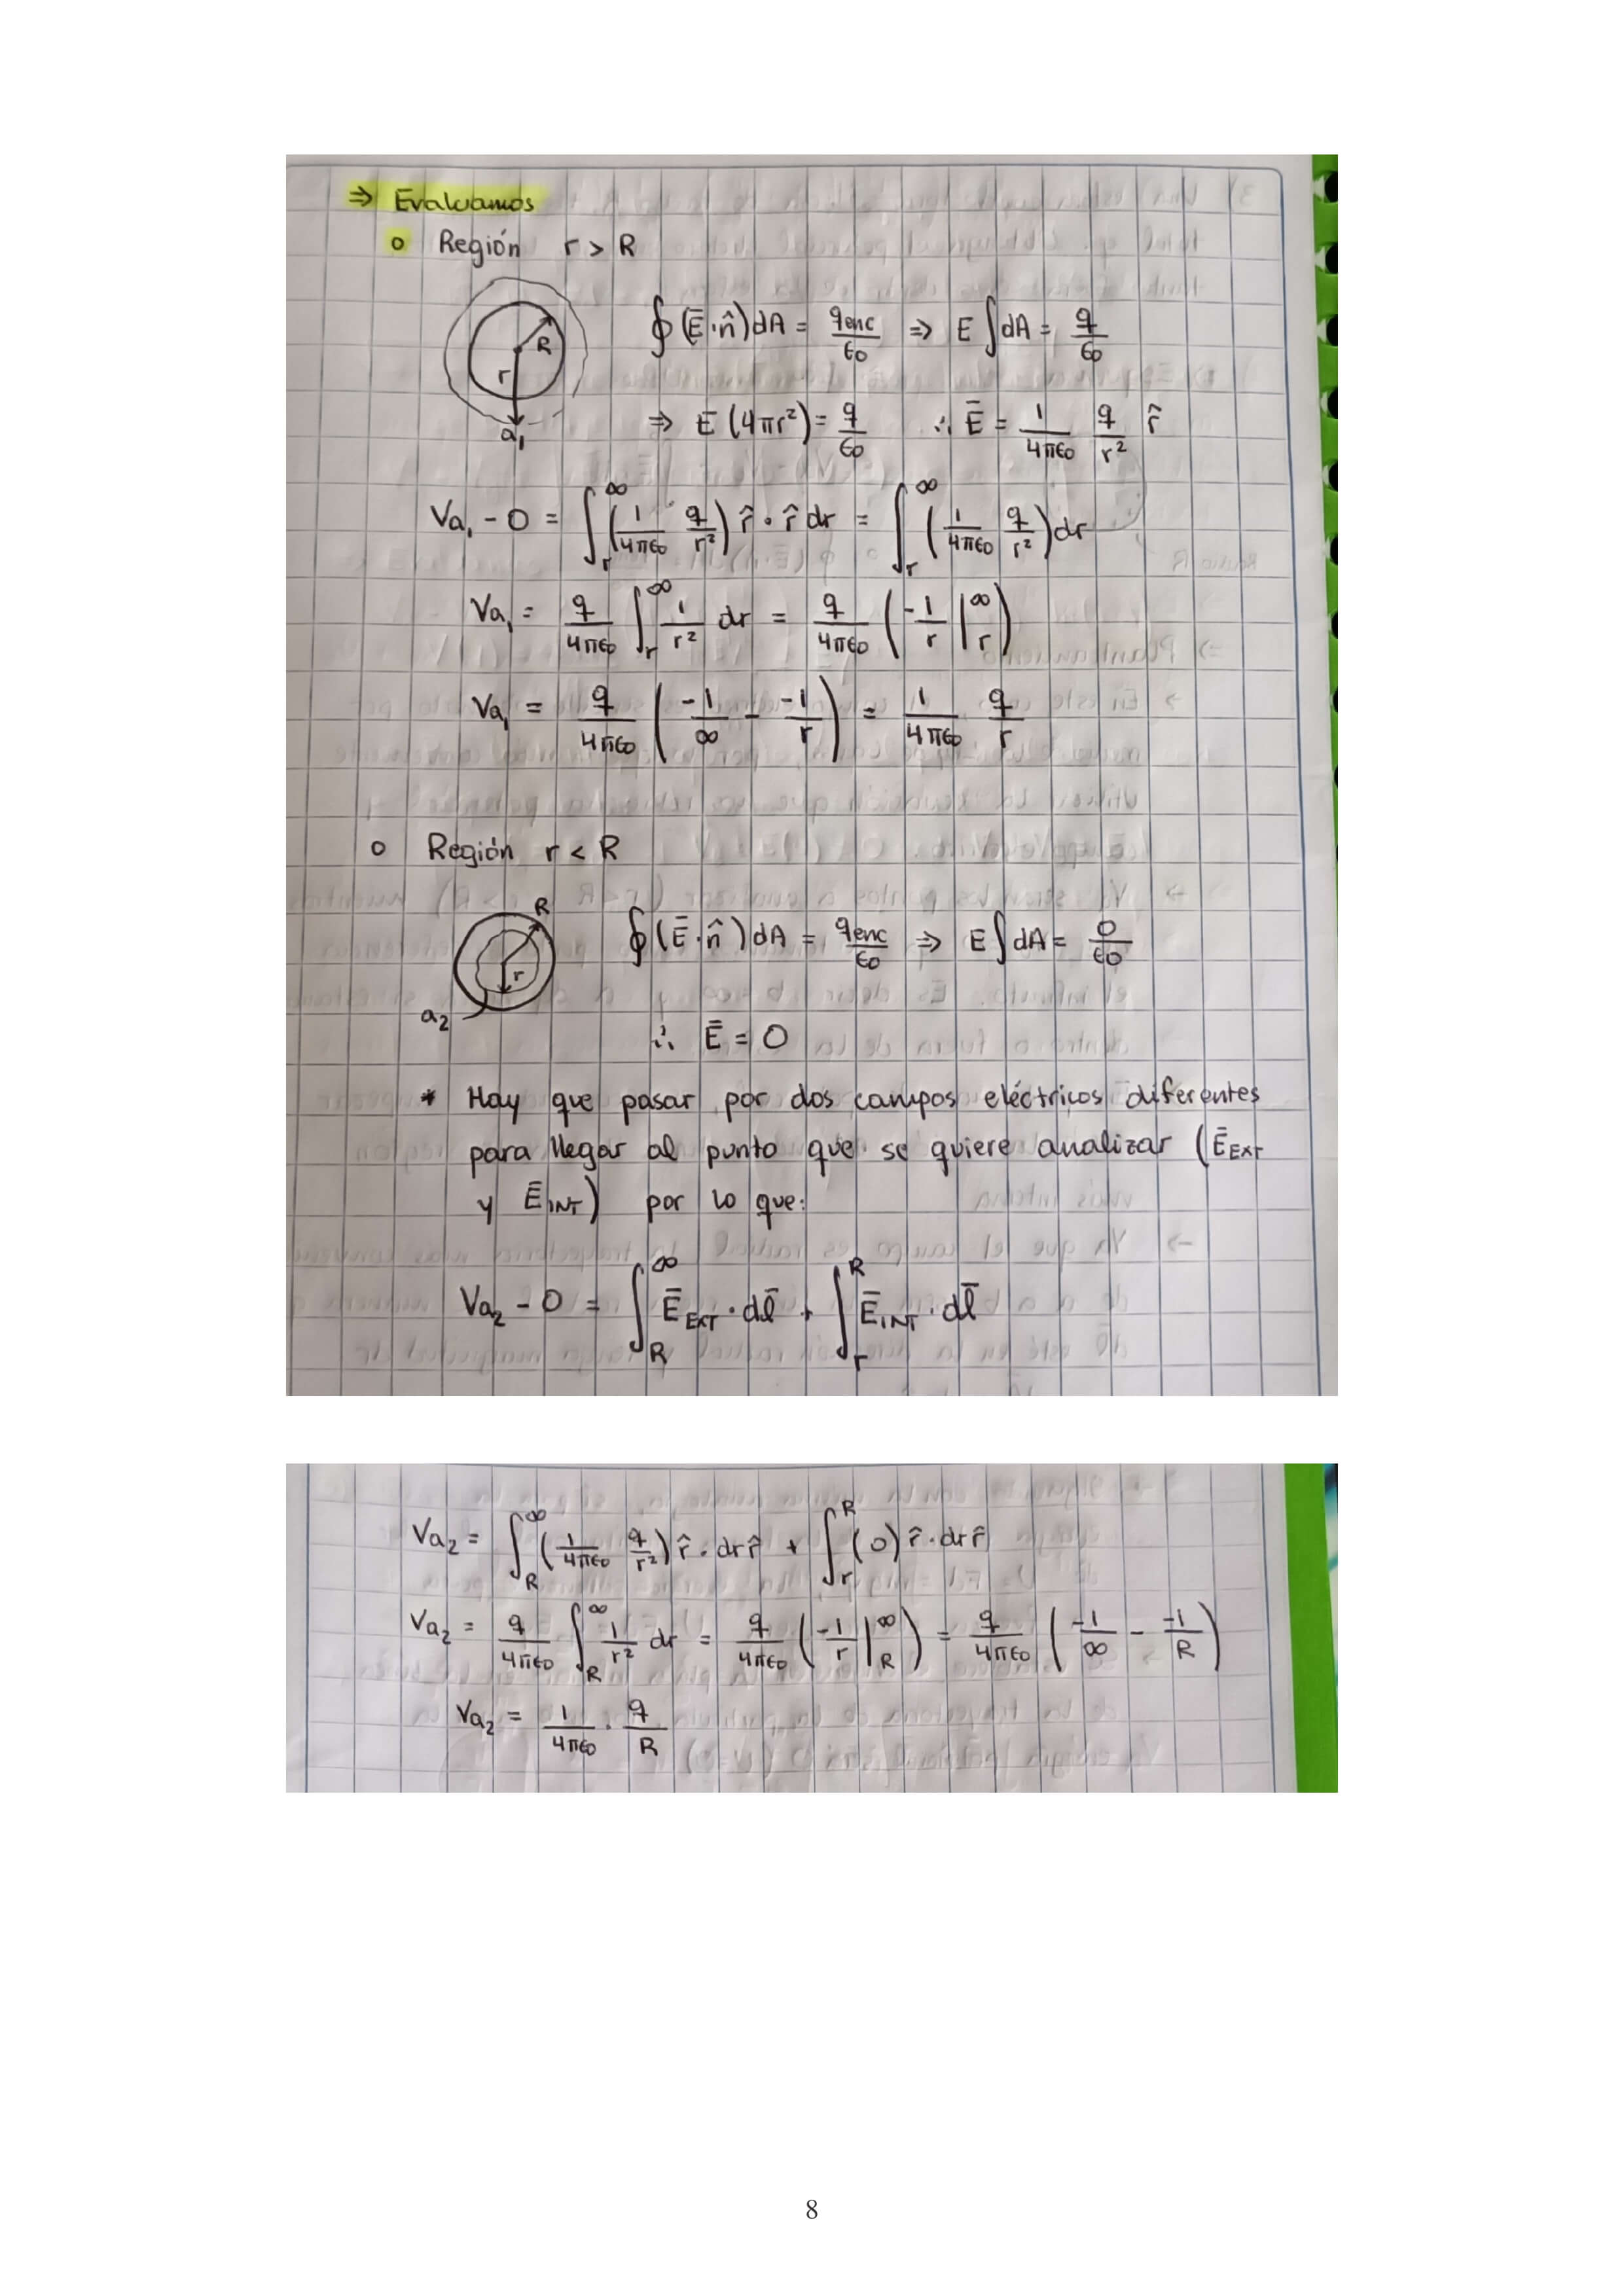 ⇒ Evaluamos
o Región r > R
R
r
a₁
∮(Ē·n̂)dA = qenc/ϵ0 ⇒ E∫dA = q/ϵ0
⇒ E(4πr²) = q/ϵ0 ∴ Ē = 1/4πϵ0 q/r² r̂
Va₁ - 0 = ∫_r^∞ (1/4πϵ0 q/r²) r̂ · r̂ dr = ∫_r^∞ (1/4πϵ0 q/r²)dr
Va₁ = q/4πϵ0 ∫_r^∞ 1/r² dr = q/4πϵ0 (-1/r |_r^∞)
Va₁ = q/4πϵ0 (-1/∞ - -1/r) = 1/4πϵ0 q/r
o Región r < R
R
r
a₂
∮(Ē·n̂)dA = qenc/ϵ0 ⇒ E∫dA = 0/ϵ0
∴ Ē = 0
* Hay que pasar por dos campos eléctricos diferentes
para llegar al punto que se quiere analizar (Ē EXT
y Ē INT) por lo que:
Va₂ - 0 = ∫_R^∞ Ē EXT · dl̄ + ∫_r^R Ē INT · dl̄
Va₂ = ∫_R^∞ (1/4πϵ0 q/r²) r̂ · dr r̂ + ∫_r^R (0) r̂ · dr r̂
Va₂ = q/4πϵ0 ∫_R^∞ 1/r² dr = q/4πϵ0 (-1/r |_R^∞) = q/4πϵ0 (-1/∞ - -1/R)
Va₂ = 1/4πϵ0 · q/R
8